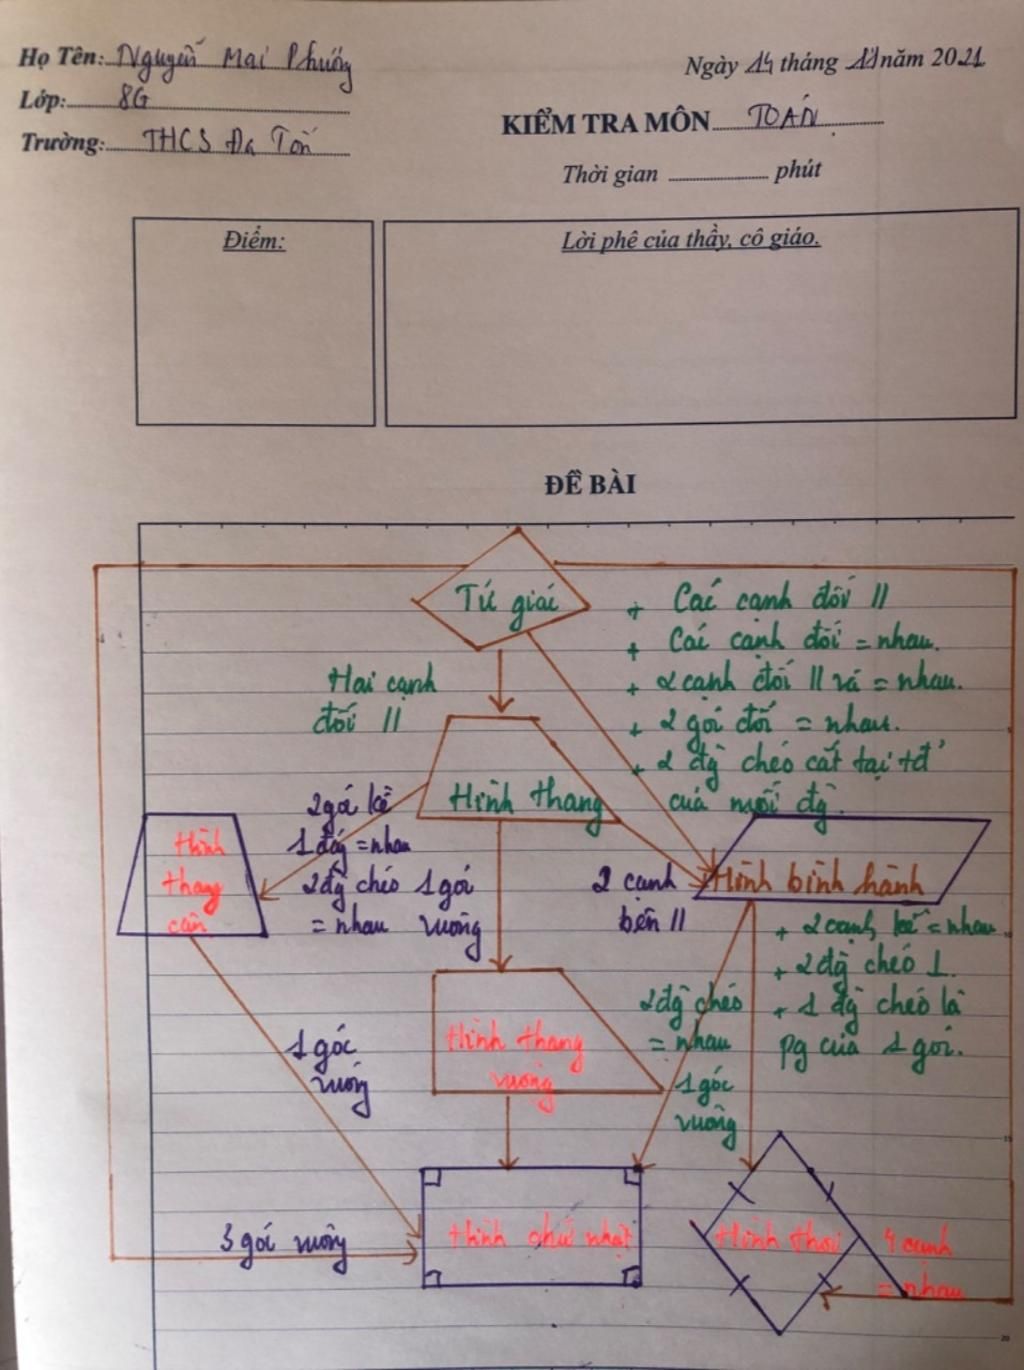 Họ Tên: Nguyễn Mai Phương
Ngày 14 tháng 11 năm 2021
Lớp: 8G
KIỂM TRA MÔN TOÁN
Trường: THCS Đa Tốn
Thời gian ............ phút
Điểm:
Lời phê của thầy, cô giáo.
ĐỀ BÀI
Tứ giác
+ Các cạnh đối //
+ Các cạnh đối = nhau.
+ 2 cạnh đối // và = nhau.
+ 2 góc đối = nhau.
+ 2 đg chéo cắt tại tđ
của mỗi đg.
Hai cạnh
đối //
Hình thang
2 góc kề
1 đáy = nhau
2 đg chéo
= nhau
1 góc
vuông
Hình
thang
cân
2 cạnh
bên //
Hình bình hành
+ 2 cạnh kề = nhau
+ 2 đg chéo ⊥.
+ 1 đg chéo là
pg của 1 góc.
2 đg chéo
= nhau
1 góc
vuông
Hình thang
vuông
1 góc
vuông
3 góc vuông
Hình chữ nhật
Hình thoi
4 cạnh
= nhau